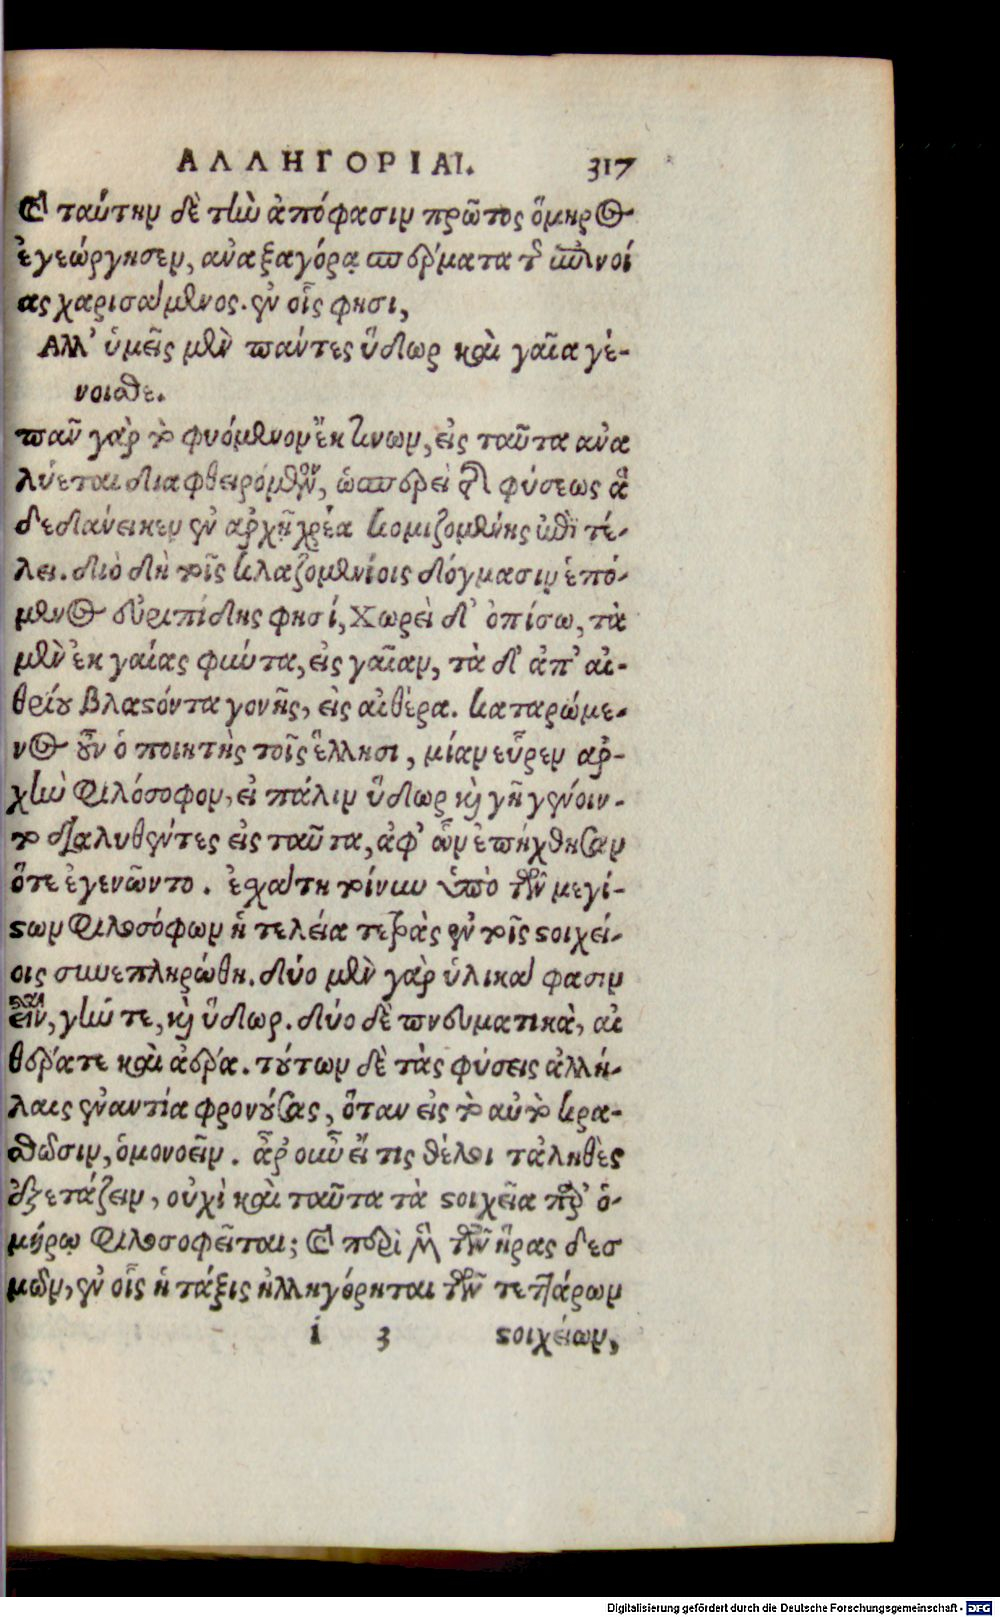 ΑΛΛΗΓΟΡΙΑΙ. 317
καὶ ταύτην δὲ τὴν ἀπόφασιν πρῶτος ὅμηρος
ἐγεώργησεν, ἀναξαγόρᾳ σπέρματα τῆς ἐπινοί
ας χαρισάμενος. ἐν οἷς φησι,
Αλλ' ὑμεῖς μὲν πάντες ὕδωρ καὶ γαῖα γέ-
νοισθε.
πᾶν γὰρ τὸ φυόμενον ἔκ τινων, εἰς ταῦτα ἀνα
λύεται διαφθειρόμενον, ὡσπερεὶ τῆς φύσεως ἃ
δεδάνεικεν ἐν ἀρχῇ χρέα κομιζομένης ἐπὶ τέ-
λει. διὸ δὴ τοῖς κλαζομενίοις δόγμασιν ἑπό-
μενος εὐριπίδης φησί, Χωρεὶ δ' ὀπίσω, τὰ
μὲν ἐκ γαίας φύντα, εἰς γαῖαν, τὰ δ' ἀπ' αἰ-
θρίου βλαστόντα γονῆς, εἰς αἰθέρα. καταρώμε-
νος οὖν ὁ ποιητὴς τοῖς ἕλλησι, μίαν εὗρεν ἀρ-
χὴν φιλόσοφον, εἰ πάλιν ὕδωρ καὶ γῆ γένοιν-
το διαλυθέντες εἰς ταῦτα, ἀφ' ὧν ἐπήχθησαν
ὅτε ἐγενῶντο. ἐσχάτη τοίνυν ὑπὸ τῶν μεγί-
στων φιλοσόφων ἡ τελεία τετρὰς ἐν τοῖς στοιχεί-
οις συνεπληρώθη. δύο μὲν γὰρ ὑλικά φασιν
εἶναι, γῆν τε, καὶ ὕδωρ. δύο δὲ πνευματικὰ, αἰ
θέρα τε καὶ ἀέρα. τούτων δὲ τὰς φύσεις ἀλλή-
λαις ἐναντία φρονούσας, ὅταν εἰς τὸ αὐτὸ κρα-
θῶσιν, ὁμονοεῖν. ἆρ' οὖν εἴ τις θέλοι τἀληθὲς
ἐξετάζειν, οὐχὶ καὶ ταῦτα τὰ στοιχεῖα παρ' ὁ-
μήρῳ φιλοσοφεῖται; καὶ περὶ μὲν τῶν ἥρας δεσ
μῶν, ἐν οἷς ἡ τάξις ἠλληγόρηται τῶν τεττάρων
i 3 στοιχείων,
Digitalisierung gefördert durch die Deutsche Forschungsgemeinschaft - DFG